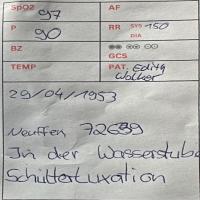 SpO2 97 AF
P 90 RR SYS 150
DIA
BZ
GCS
TEMP PAT. Edith
Walker
29/04/1953
Neuffen 72639
In der Wasserstube
Schulterluxation